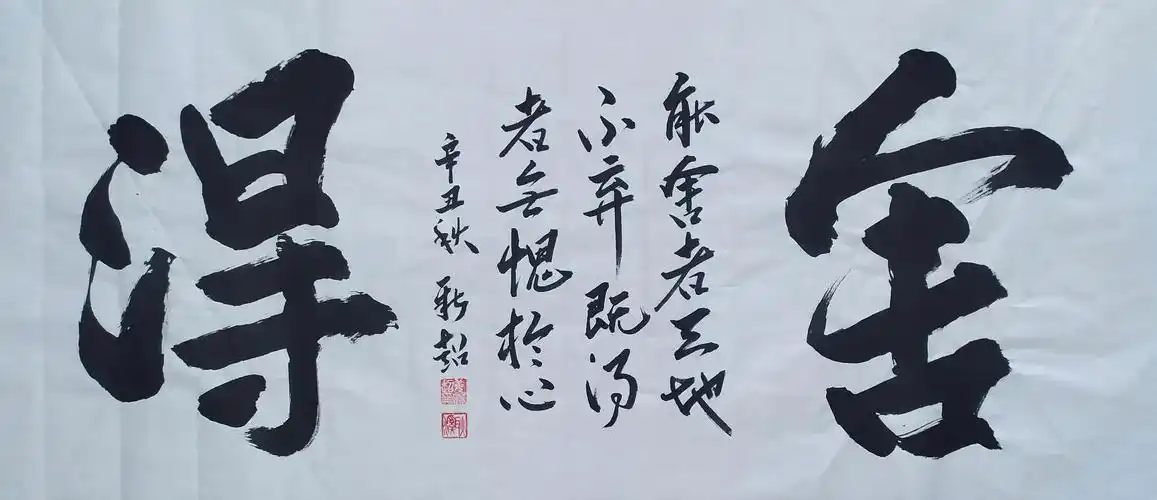 舍
能舍者天地
不弃既得
者无愧於心
辛丑秋 新超
得